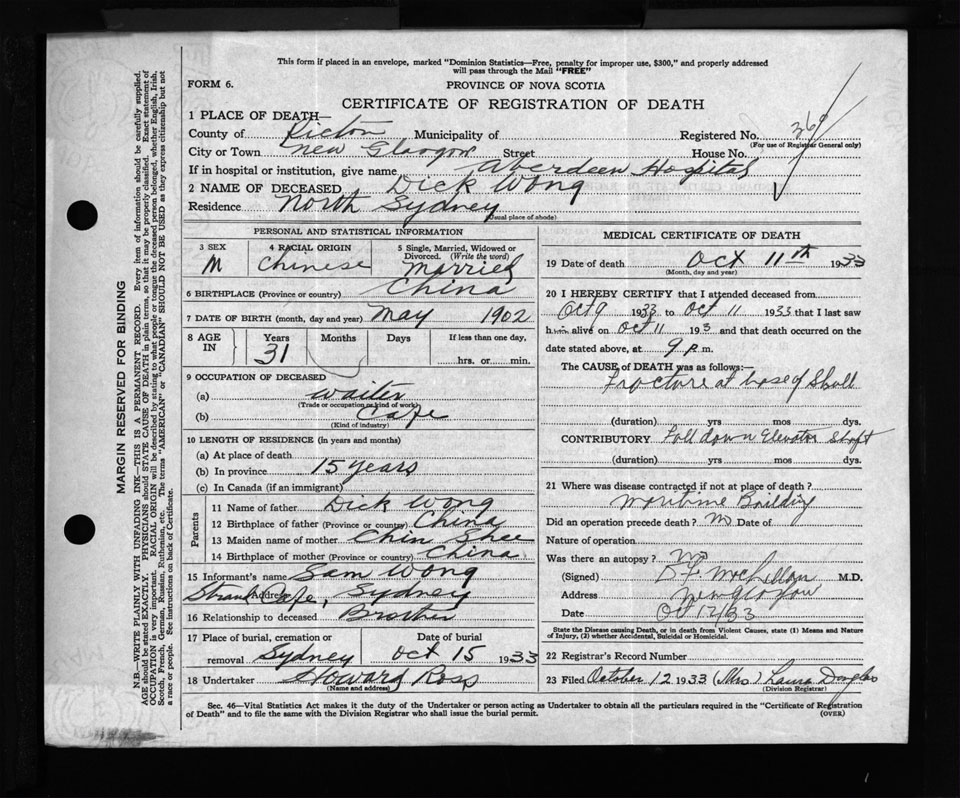 This form if placed in an envelope, marked "Dominion Statistics—Free, penalty for improper use, $300," and properly addressed
will pass through the Mail "FREE"
FORM 6.
PROVINCE OF NOVA SCOTIA
CERTIFICATE OF REGISTRATION OF DEATH
1 PLACE OF DEATH—
County of Pictou Municipality of Registered No. 369
(For use of Registrar General only)
City or Town New Glasgow Street House No.
If in hospital or institution, give name Aberdeen Hospital
2 NAME OF DECEASED Dick Wong
Residence North Sydney
(Usual place of abode)
PERSONAL AND STATISTICAL INFORMATION
3 SEX 4 RACIAL ORIGIN 5 Single, Married, Widowed or
Divorced. (Write the word)
M Chinese Married
6 BIRTHPLACE (Province or country) China
7 DATE OF BIRTH (month, day and year) May 1902
8 AGE IN Years Months Days If less than one day,
31 hrs. or min.
9 OCCUPATION OF DECEASED
(a) Waiter
(Trade or occupation or kind of work)
(b) Cafe
(Kind of industry)
10 LENGTH OF RESIDENCE (in years and months)
(a) At place of death
(b) In province 15 years
(c) In Canada (if an immigrant)
Parents
11 Name of father Dick Wong
12 Birthplace of father (Province or country) China
13 Maiden name of mother Chin Shee
14 Birthplace of mother (Province or country) China
15 Informant's name Sam Wong
Address Strand Cafe, Sydney
16 Relationship to deceased Brother
17 Place of burial, cremation or Date of burial
removal Sydney Oct 15 1933
18 Undertaker Howard Ross
(Name and address)
MEDICAL CERTIFICATE OF DEATH
19 Date of death Oct 11th 1933
(Month, day and year)
20 I HEREBY CERTIFY that I attended deceased from
Oct 9 1933 to Oct 11 1933 that I last saw
him alive on Oct 11 193 and that death occurred on the
date stated above, at 9 p.m.
The CAUSE of DEATH was as follows:—
Fracture at base of Skull
(duration) yrs mos dys.
CONTRIBUTORY Fall down Elevator Shaft
(duration) yrs mos dys.
21 Where was disease contracted if not at place of death?
Maritime Building
Did an operation precede death? No Date of
Nature of operation
Was there an autopsy? No
(Signed) M.D.
Address New Glasgow
Date Oct 12/33
State the Disease causing Death, or in death from Violent Causes, state (1) Means and Nature
of Injury, (2) whether Accidental, Suicidal or Homicidal.
22 Registrar's Record Number
23 Filed October 12 1933 (Mrs) Laura Douglas
(Division Registrar)
Sec. 46—Vital Statistics Act makes it the duty of the Undertaker or person acting as Undertaker to obtain all the particulars required in the "Certificate of Registration
of Death" and to file the same with the Division Registrar who shall issue the burial permit.
(OVER)
MARGIN RESERVED FOR BINDING
N.B.—WRITE PLAINLY WITH UNFADING INK—THIS IS A PERMANENT RECORD. Every item of information should be carefully supplied.
AGE should be stated EXACTLY. PHYSICIANS should STATE CAUSE OF DEATH in plain terms, so that it may be properly classified. Exact statement of
OCCUPATION is very important. RACIAL ORIGIN will be described by stating to what people or tongue the deceased person belonged, whether English, Irish,
Scotch, French, German, Russian, Ruthenian, etc. The terms "AMERICAN" or "CANADIAN" SHOULD NOT BE USED as they express citizenship but not
a race or people. See instructions on back of Certificate.